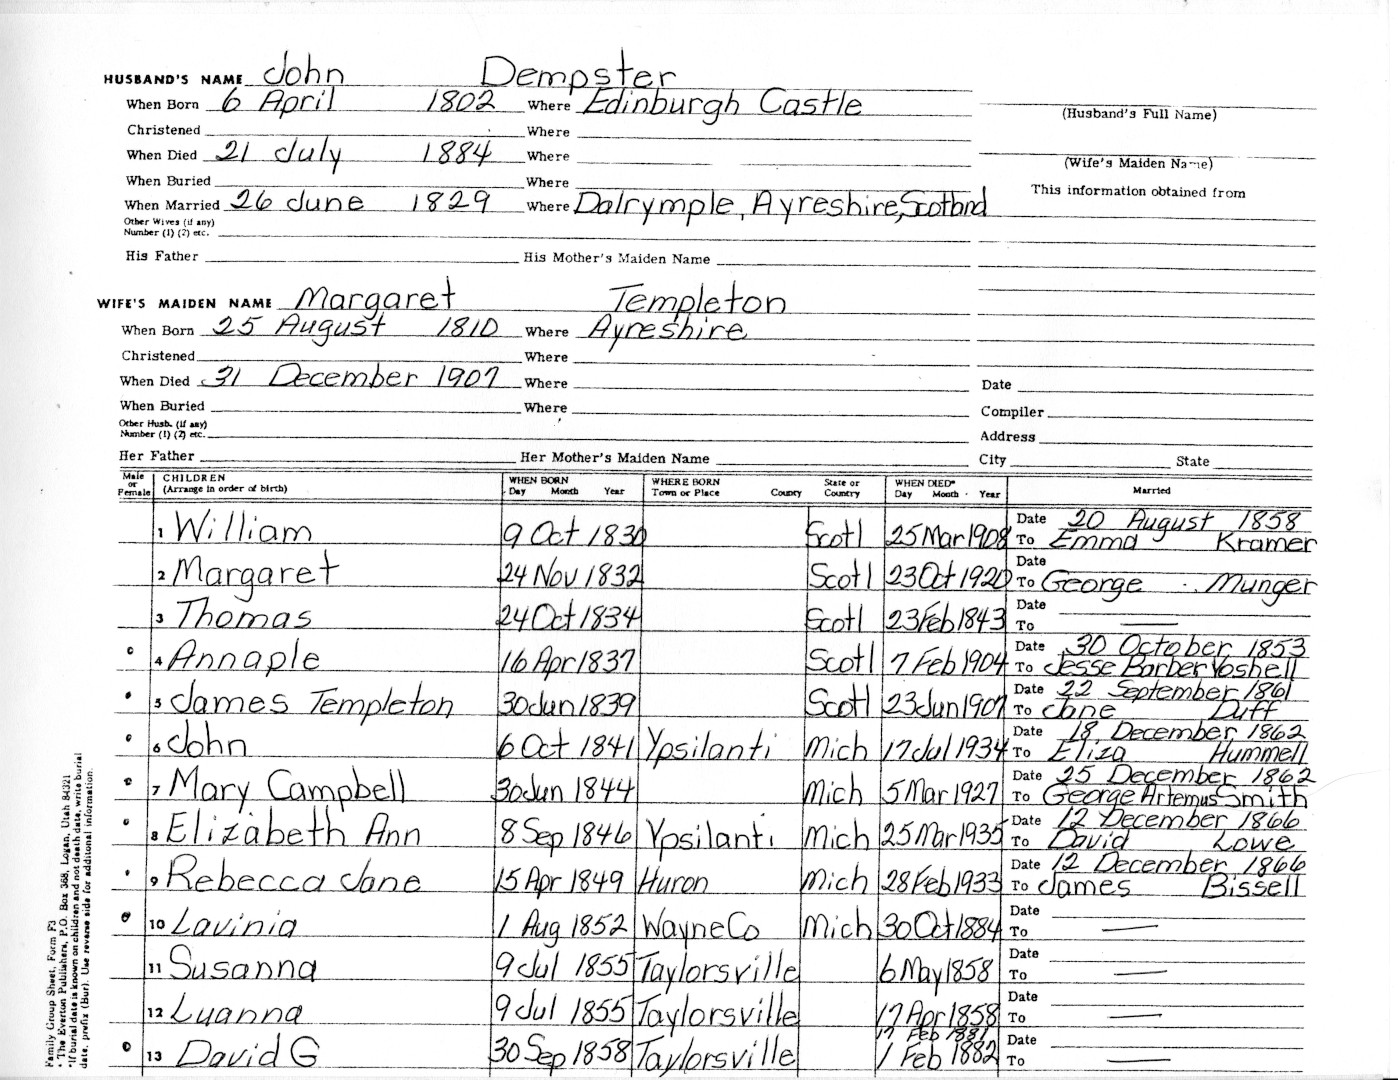 HUSBAND'S NAME John Dempster
When Born 6 April 1802 Where Edinburgh Castle
(Husband's Full Name)
Christened Where
When Died 21 July 1884 Where
(Wife's Maiden Name)
When Buried Where
This information obtained from
When Married 26 June 1829 Where Dalrymple, Ayreshire, Scotland
Other Wives (if any)
Number (1) (2) etc.
His Father His Mother's Maiden Name
WIFE'S MAIDEN NAME Margaret Templeton
When Born 25 August 1810 Where Ayreshire
Christened Where
When Died 31 December 1907 Where Date
When Buried Where Compiler
Other Husb. (if any)
Number (1) (2) etc. Address
Her Father Her Mother's Maiden Name City State
Male or Female CHILDREN (Arrange in order of birth) WHEN BORN Day Month Year WHERE BORN Town or Place County State or Country WHEN DIED* Day Month Year Married
1 William 9 Oct 1830 Scotl 25 Mar 1908 Date 20 August 1858
To Emma Kramer
2 Margaret 24 Nov 1832 Scotl 23 Oct 1920 Date
To George Munger
3 Thomas 24 Oct 1834 Scotl 23 Feb 1843 Date
To —
4 Annaple 16 Apr 1837 Scotl 7 Feb 1904 Date 30 October 1853
To Jesse Barber Voshell
5 James Templeton 30 Jun 1839 Scotl 23 Jun 1907 Date 22 September 1861
To Jane Duff
6 John 6 Oct 1841 Ypsilanti Mich 17 Jul 1934 Date 18 December 1862
To Eliza Hummell
7 Mary Campbell 30 Jun 1844 Mich 5 Mar 1927 Date 25 December 1862
To George Artemus Smith
8 Elizabeth Ann 8 Sep 1846 Ypsilanti Mich 25 Mar 1935 Date 12 December 1866
To David Lowe
9 Rebecca Jane 15 Apr 1849 Huron Mich 28 Feb 1933 Date 12 December 1866
To James Bissell
10 Lavinia 1 Aug 1852 Wayne Co Mich 30 Oct 1884 Date
To —
11 Susanna 9 Jul 1855 Taylorsville 6 May 1858 Date
To —
12 Luanna 9 Jul 1855 Taylorsville 17 Apr 1858 Date
To —
17 Feb 1881
13 David G 30 Sep 1858 Taylorsville 1 Feb 1882 Date
To —
Family Group Sheet, Form F3
* The Everton Publishers, P.O. Box 368, Logan, Utah 84321
*If burial date is known on children and not death date, write burial
date, prefix (Bur). Use reverse side for additional information.